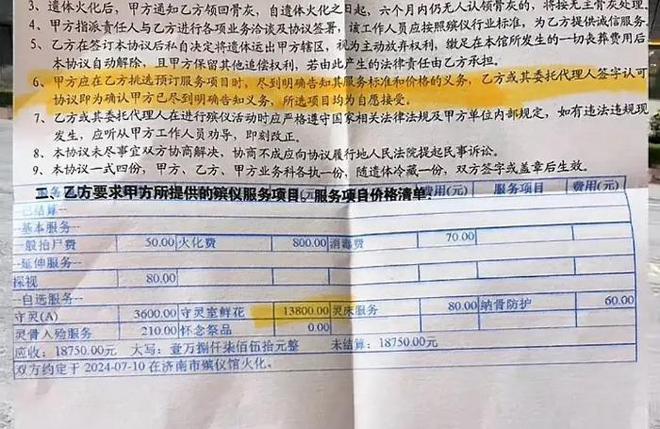 3、遗体火化后,甲方通知乙方领回骨灰,自遗体火化之日起,六个月内仍无人认领骨灰的,将按无主骨灰处理。
4、甲方指派责任人与乙方进行各项业务洽谈及协议签署,该工作人员应按照殡仪行业标准,为乙方提供诚信服务。
5、乙方在签订本协议后私自决定将遗体运出甲方辖区,视为主动放弃权利,缴足在本馆所发生的一切丧葬费用后
本协议自动解除,且甲方保留其他追偿权利,若由此产生的法律责任由乙方承担。
6、甲方应在乙方挑选预订服务项目时,尽到明确告知其服务标准和价格的义务,乙方或其委托代理人签字认可
协议即为确认甲方已尽到明确告知义务,所选项目均为自愿接受。
7、乙方或其委托代理人在进行殡仪活动时应严格遵守国家相关法律法规及甲方单位内部规定,如有违法违规现
发生,应听从甲方工作人员劝导,即刻改正。
8、本协议未尽事宜双方协商解决,协商不成应向协议履行地人民法院提起民事诉讼。
9、本协议一式四份,甲方、乙方、甲方业务科各执一份,随遗体冷藏一份,双方签字或盖章后生效。
二、乙方要求甲方所提供的殡仪服务项目、服务项目价格清单:
费用(元) 服务项目 费用(元)
--已结算--
--基本服务--
一般抬尸费 50.00 火化费 800.00 消毒费 70.00
--延伸服务--
探视 80.00
--自选服务--
守灵(A) 3600.00 守灵室鲜花 13800.00 灵床服务 80.00 纳骨防护 60.00
灵骨入殓服务 210.00 怀念祭品 0.00
应收:18750.00元 大写:壹万捌仟柒佰伍拾元整 未结算:18750.00元
双方约定于 2024-07-10 在济南市殡仪馆火化。